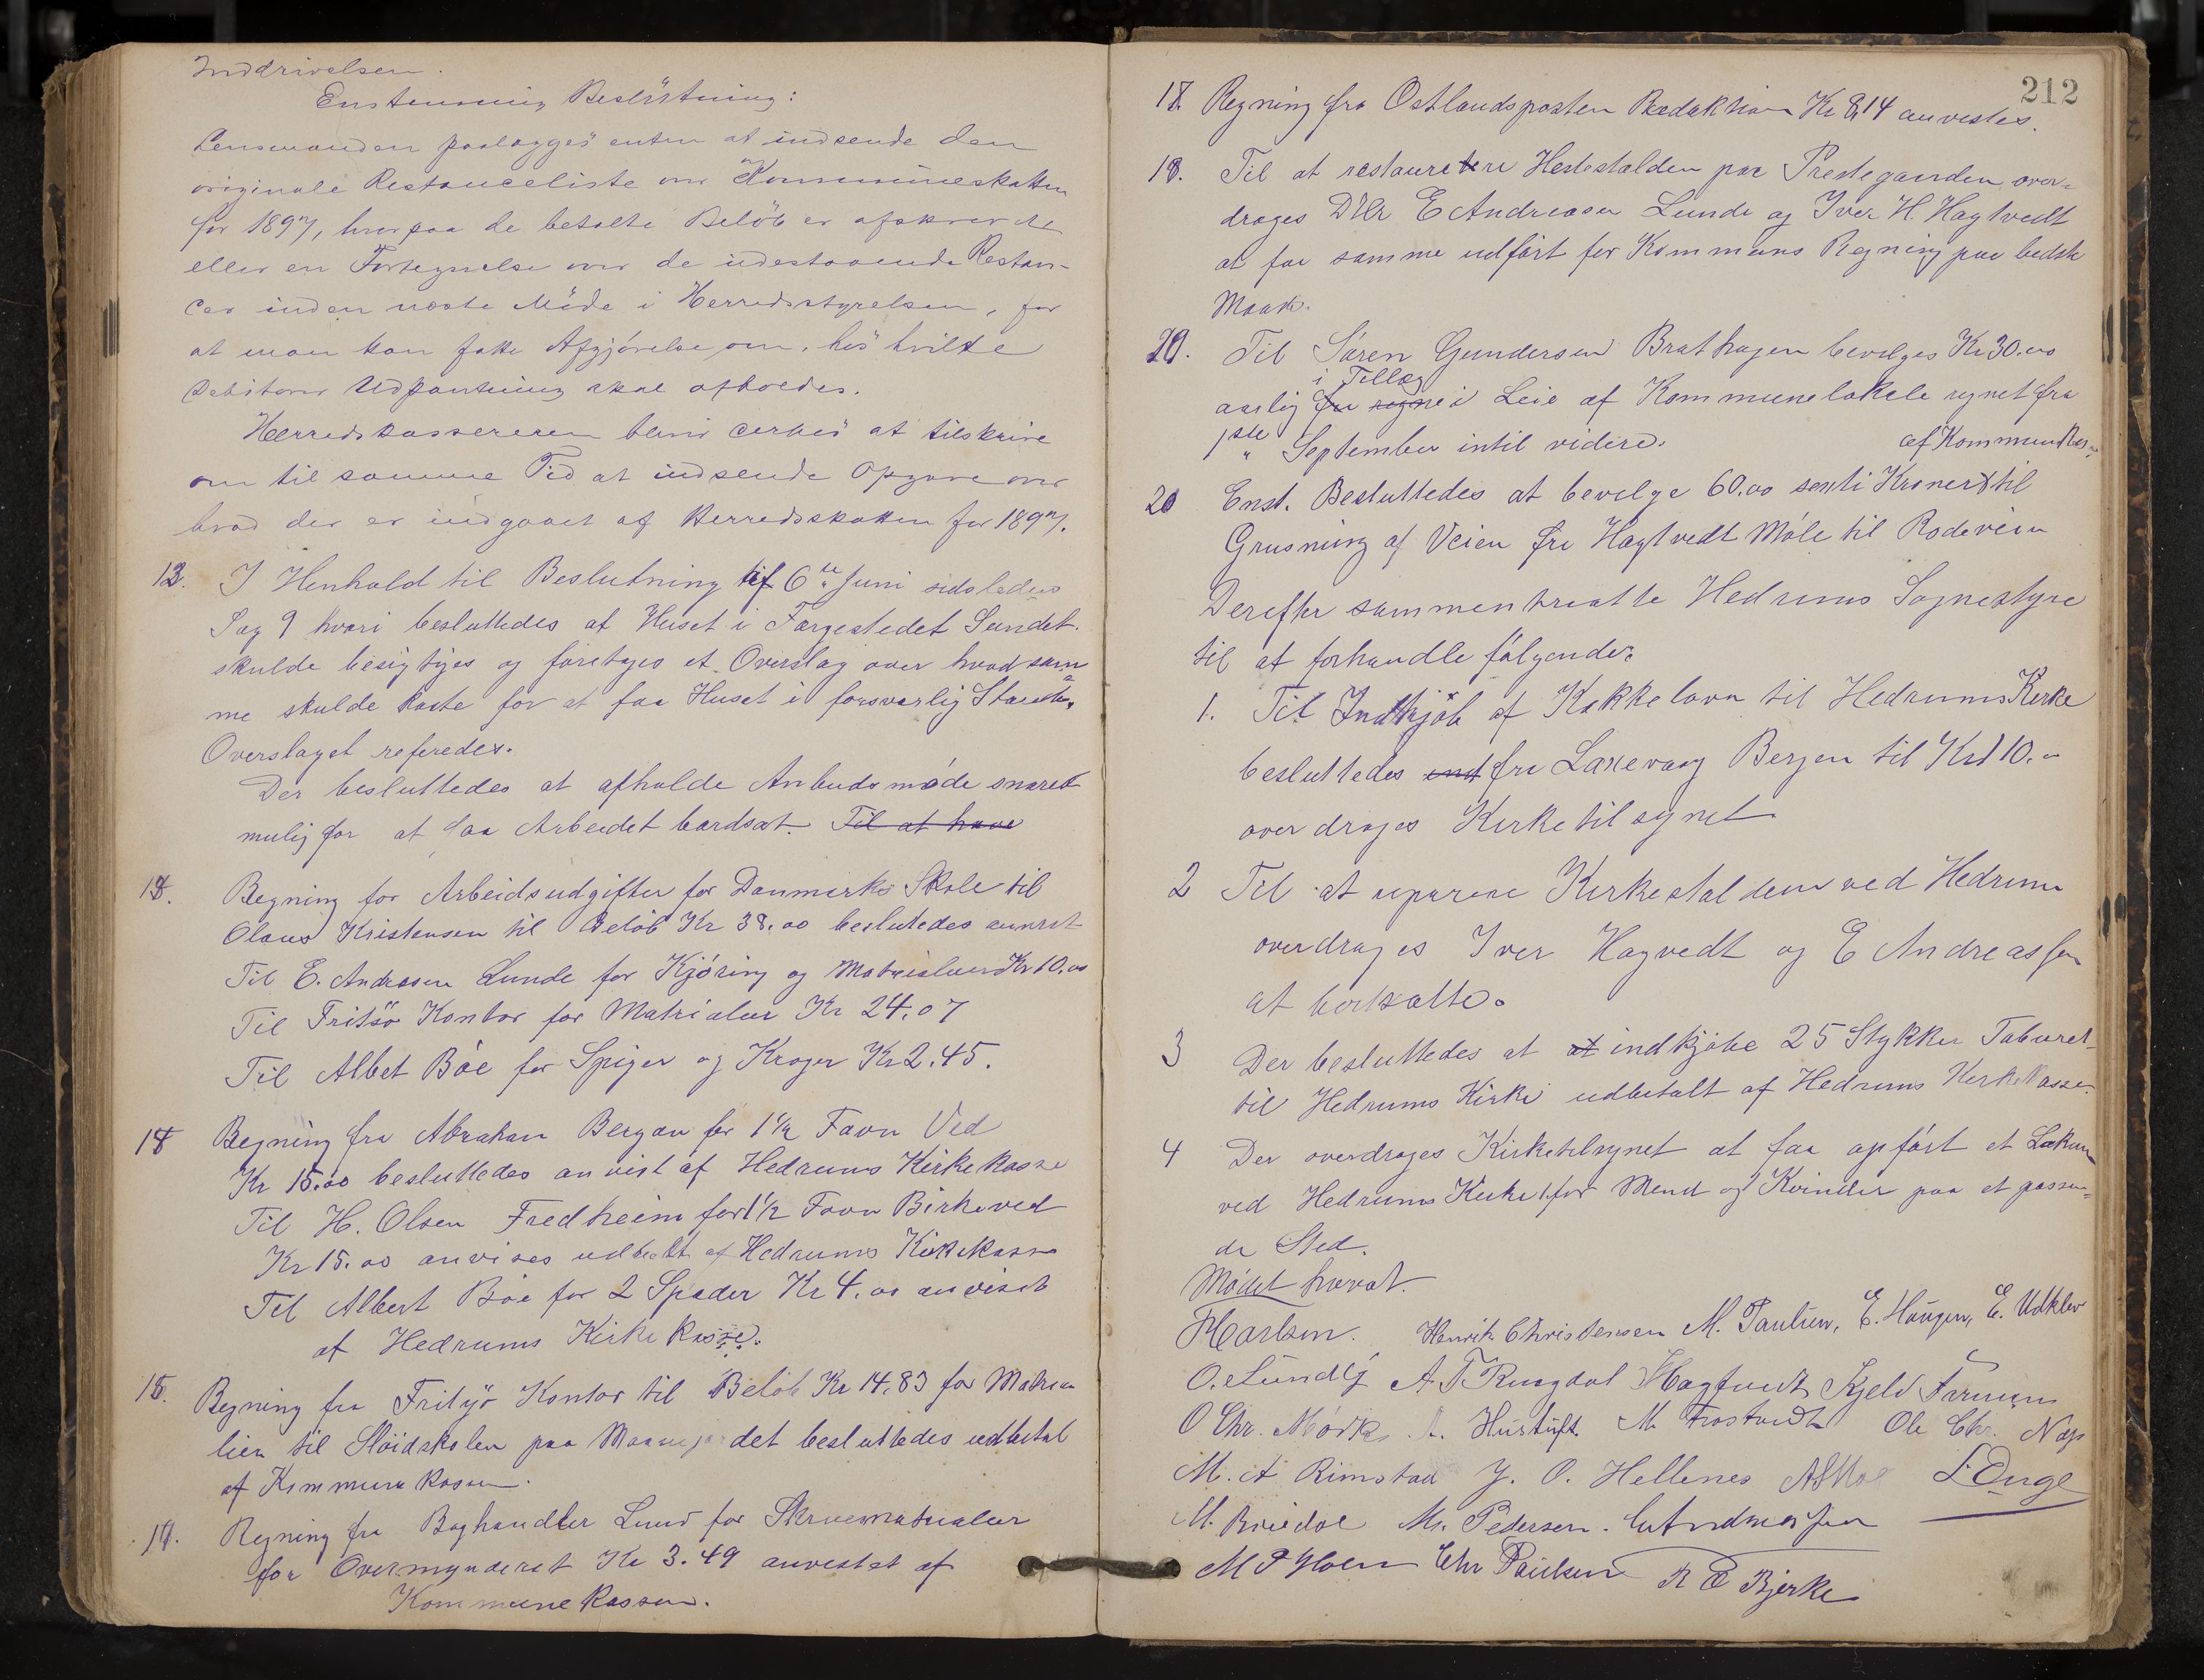 Inddrivelsen.
Enstemmig Beslutning:
Lensmanden paalægges enten at indsende den
originale Restanceliste over Kommuneskatten
for 1897, hvorpaa de betalte Beløb er afskrevet
eller en Fortegnelse over de udestaaende Restan-
cer inden næste Møde i Herredsstyrelsen, for
at man kan fatte Afgjørelse om, hos hvilke
Debitorer Udpantning skal afholdes.
Herredskassereren at tilskrive
om til samme Tid at indsende Opgave over
hvad der er indgaaet af Herredsskatten for 1897.
13. I Henhold til Beslutning af 6te Juni sidstledes
Sag 9 hvori besluttedes at Huset i Fargestedet Sundet
skulde besigtiges og foretages et Overslag over hvad sam-
me skulde koste for at faa Huset i forsvarlig Stand.
Overslaget referedes.
Der besluttedes at afholde Anbudsmøde snarest
mulig for at faa Arbeidet bordsat. Til at have
Regning for Arbeidsudgifter for Danmerks Skole til
Olaus Kristensen til Beløb Kr 38.00 beslutedes anvist
Til E. Andresen Lunde for Kjøring og Matrialier Kr 10.00
Til Fritsø Kontor for Matrialier Kr 24.07
Til Albet Bøe for Spiger og Kroger Kr 2.45.
Regning fra Abraham Bergan for 1½ Favn Ved
Kr 15.00 besluttedes anvist af Hedrums Kirkekasse
Til H. Olsen Fredheim for 1½ Favn Birkeved
Kr 15.00 anvises udbetalt af Hedrums Kirkekasse
Til Albert Bøe for 2 Spader Kr 4.00 anvist
af Hedrums Kirkekasse.
Regning fra Fritzø Kontor til Beløb Kr 14.83 for Matria
lier til Sløidskolen paa det besluttedes udbetal
af Kommunekassen.
Regning fra Boghandler Lund for Skrivematrialier
for Overmynderiet Kr 3.49 anvestet af
Kommunekassen.
212
18. Regning fra Ostlandsposten Redaktion Kr 8,14 anvistes.
Til at restaurere Hestestalden paa Prestegaarden over-
drages DHr E Andreasen Lunde og Iver H. Hagtvedt
at faa samme udført for Kommuns Regning paa bedste
Maade.
Til Søren Gundersen Brathagen bevilges Kr 30.00
i Tillæg
aarlig i Leie af Kommunelokale regnet fra
1ste September intil videre.
af Kommunekas-
20 Enst. Besluttedes at bevilge 60.00 sexti Kroner til
Grusning af Veien fra Hagtvedt Møle til Rodeveien
Derefter sammentraatte Hedrums Sognestyre
til at forhandle følgende:
1. Til Indkjøb af Kakkelovn til Hedrums Kirke
besluttedes fra Laxevaag Bergen til Kr 110.00
overdrages Kirketilsynet
2 Til at reparere Kirkestalden ved Hedrum
overdrages Iver Hagvedt og E Andreassen
at bortsætte.
3 Der besluttedes at at indkjøbe 25 Stykker Taburet-
til Hedrums Kirke udbetalt af Hedrums Kirkekasse.
4 Der overdrages Kirketilsynet at faa opført et Lokum
ved Hedrums Kirke for Mend og Kvinder paa et passen-
de Sted.
Mødet hævet.
Henrik Christensen M. Paulsen, E. Haugen, E. Udklev
O. Lundby Hagtvedt Kjeld
O Chr. Mørk A. Hustuft. M Trostvedt Ole Chr. Næs
M. A Rimstad J. O. Hellenes
M. Bøiedal M. Pedersen. E Andreassen
Chr Paulsen R E Bjerke